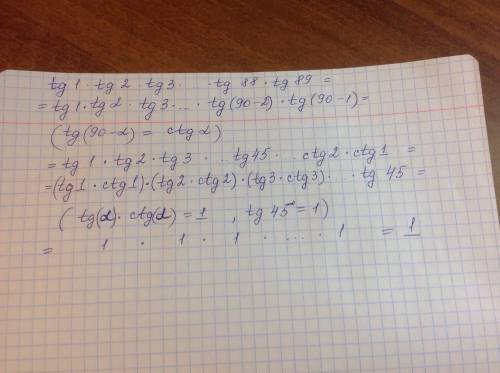 tg 1 · tg 2 · tg 3 · ... · tg 88 · tg 89 =
= tg 1 · tg 2 · tg 3 · ... · tg (90-2) · tg (90-1) =
( tg (90-α) = ctg α )
= tg 1 · tg 2 · tg 3 · ... tg 45 · ... ctg 2 · ctg 1 =
= (tg 1 · ctg 1) · (tg 2 · ctg 2) · (tg 3 · ctg 3) · ... tg 45 =
( tg(α) · ctg(α) = 1 , tg 45 = 1 )
= 1 · 1 · 1 · ... · 1 = 1